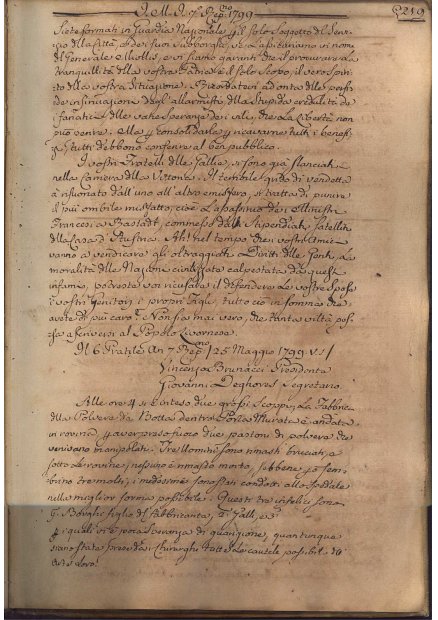 A. 7. Rep. 1799
Siete formati in Guardia Nazionale p. il solo Soggetto del Servi-
gio della Città, e dei suoi Subborghi, ve la
del Generale Miollis, e vi siamo garanti che il procurare la
tranquillità della vostra Patria è il solo Scopo, il vero Spiri-
to della vostra Istituzione. Ricordatevi ad onta delle perfi-
de insinuazioni degl'allarmisti della Stupida credulità de'
fanatici delle vane Speranze de' vili, che la Libertà non
può venire, e p. consolidarla, e ricavarne tutti i benefi-
zj tutti debbono conferire al ben pubblico.
I vostri Fratelli delle Gallie, si sono già slanciati
nella Carriera della Vittoria. Il terribile grido di vendetta
è risuonato dall'uno all'altro emisfero, si tratta di punire
il più orribile misfatto, cioè l'assassinio dei Ministri
Francesi a Rastadt, commesso dalli Stipendiati Satelliti
della Casa d'Austria. Ah! nel tempo che i vostri Amici
vanno a vendicare gli oltraggiati Diritti delle Genti, la
moralità delle Nazioni civilizzate calpestata da questi
infami, potreste voi ricusare il difendere le vostre Spose
i vostri genitori i proprj Figli, tutto ciò in somma che
avete di più caro? Non sia mai vero, che tanta viltà pos-
sa ascriversi al Popolo Livornese.
Il 6 Pratile An. 7 Rep. / 25 Maggio 1799. V.S. /
Vincenzo Brunacci Presidente
Giovanni Segretario.
Alle ore 4 si è inteso due grossi Scoppj, la Fabbrica
della Polvere da Botta dentro Porta Murata è andata
in rovina p. aver preso fuoco due pastoni di polvere che
venivano manipolati. Tre Uomini sono rimasti bruciati, e
sotto le rovine, nessuno è rimasto morto, sebbene p. sem-
bino tre molti, i medesimi sono stati condotti allo Spedale
nella miglior forma possibile. Questi tre infelici sono
Borghi figlio del Fabbricante,
p. i quali vi è poca speranza di guarigione, quantunque
siano state prese da i Chirurghi tutte le cautele possibili